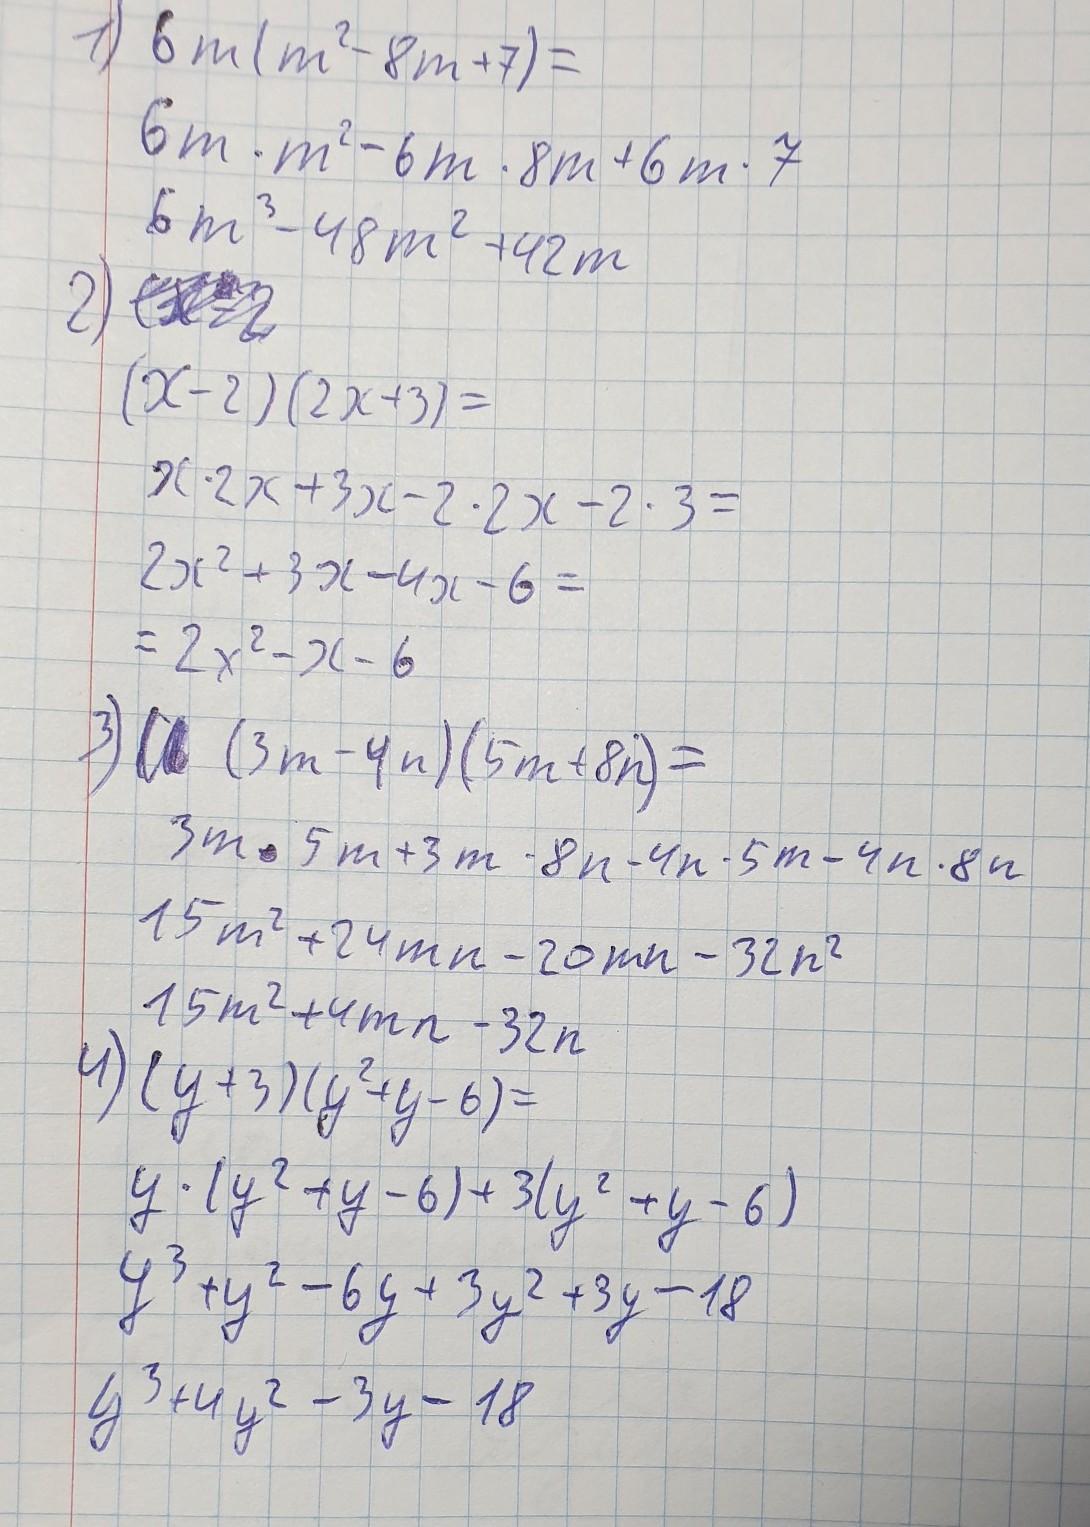 1) 6m(m²-8m+7)=
6m·m²-6m·8m+6m·7
6m³-48m²+42m
2)
(x-2)(2x+3)=
x·2x+3x-2·2x-2·3=
2x²+3x-4x-6=
=2x²-x-6
3) (3m-4n)(5m+8n)=
3m·5m+3m·8n-4n·5m-4n·8n
15m²+24mn-20mn-32n²
15m²+4mn-32n
4) (y+3)(y²+y-6)=
y·(y²+y-6)+3(y²+y-6)
y³+y²-6y+3y²+3y-18
y³+4y²-3y-18